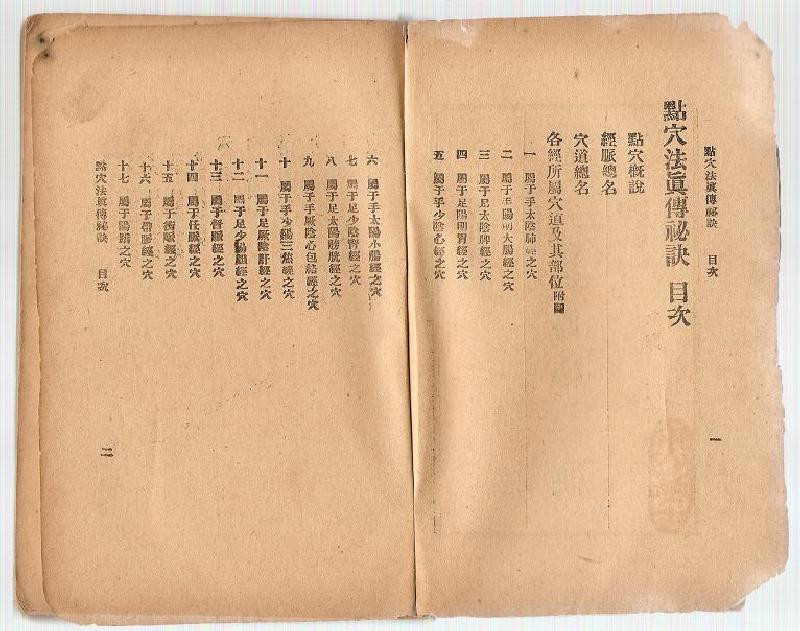 點穴法眞傳祕訣　目次
一
點穴法眞傳祕訣　目次
點穴概說
經脈總名
穴道總名
各經所屬穴道及其部位附圖
一　屬于手太陰肺經之穴
二　屬于手陽明大腸經之穴
三　屬于足太陰脾經之穴
四　屬于足陽明胃經之穴
五　屬于手少陰心經之穴
六　屬于手太陽小腸經之穴
七　屬于足少陰腎經之穴
八　屬于足太陽膀胱經之穴
九　屬于手厥陰心包絡經之穴
十　屬于手少陽三焦經之穴
十一　屬于足厥陰肝經之穴
十二　屬于足少陽胆經之穴
十三　屬于督脈經之穴
十四　屬于任脈經之穴
十五　屬于衝脈經之穴
十六　屬于帶脈經之穴
十七　屬于陽蹻之穴
點穴法眞傳祕訣　目次
二